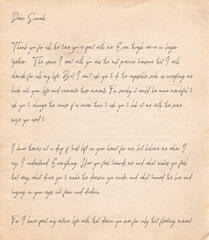 Dear Sarah
Thank you for all the time you've spent with me. Even though we're no longer
together. The years I spent with you was the most precious treasure that I will
cherish for all my life. But I can't ask you to do the impossible such as accepting me
back into your life and recreate those moments. For surely it would be more merciful to
ask you to change the course of a river than to ask you to look at me with the same
eyes you used to.
I know there's not a drop of trust left in your heart for me, but believe me when I
say I understand. Everything. How you feel towards me and what makes you feel
that way, what drove you to make the decision you made, and what turned the love and
longing in your eyes into fear and disdain.
For I have spent my entire life with that demon you saw for only that fleeting moment.